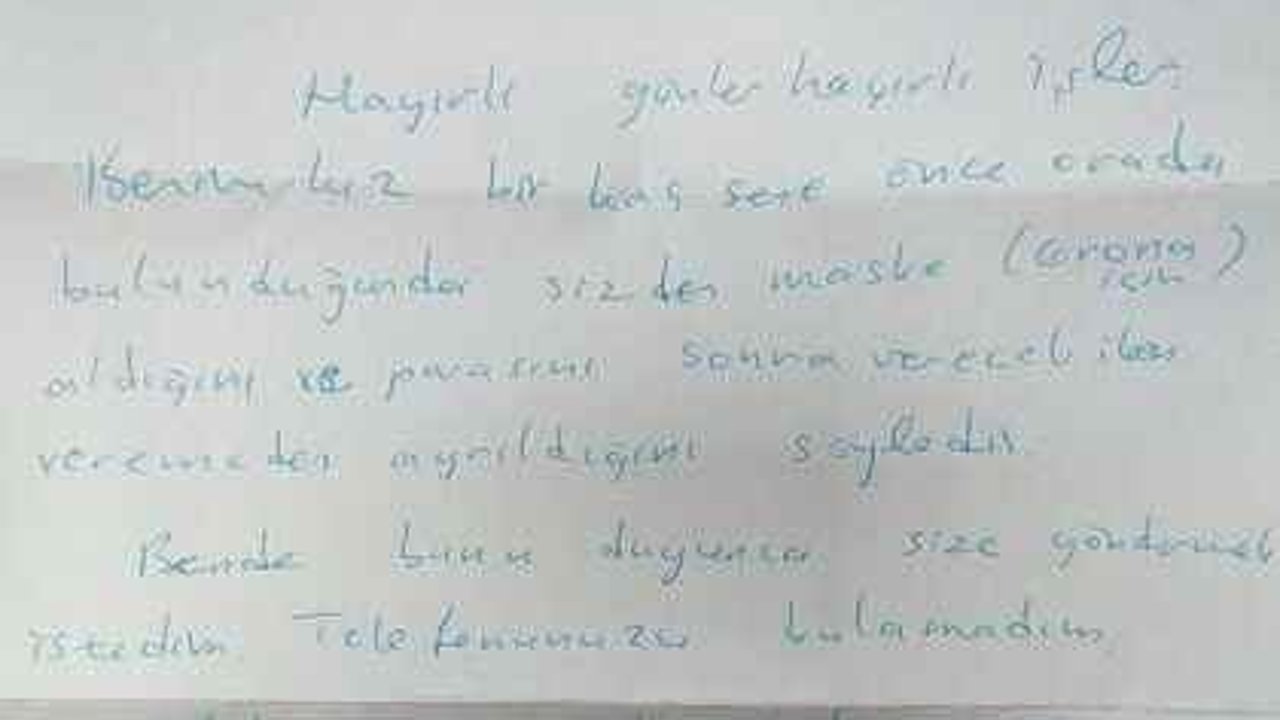 Hayırlı günler hayırlı işler
Benim kız bir kaç sene önce orada
bulunduğunda sizden maske (corona için)
aldığını ve parasını sonra verecek iken
veremeden ayrıldığını söyledi
Bende bunu duyunca size göndermek
istedim Telefonunuzu bulamadım